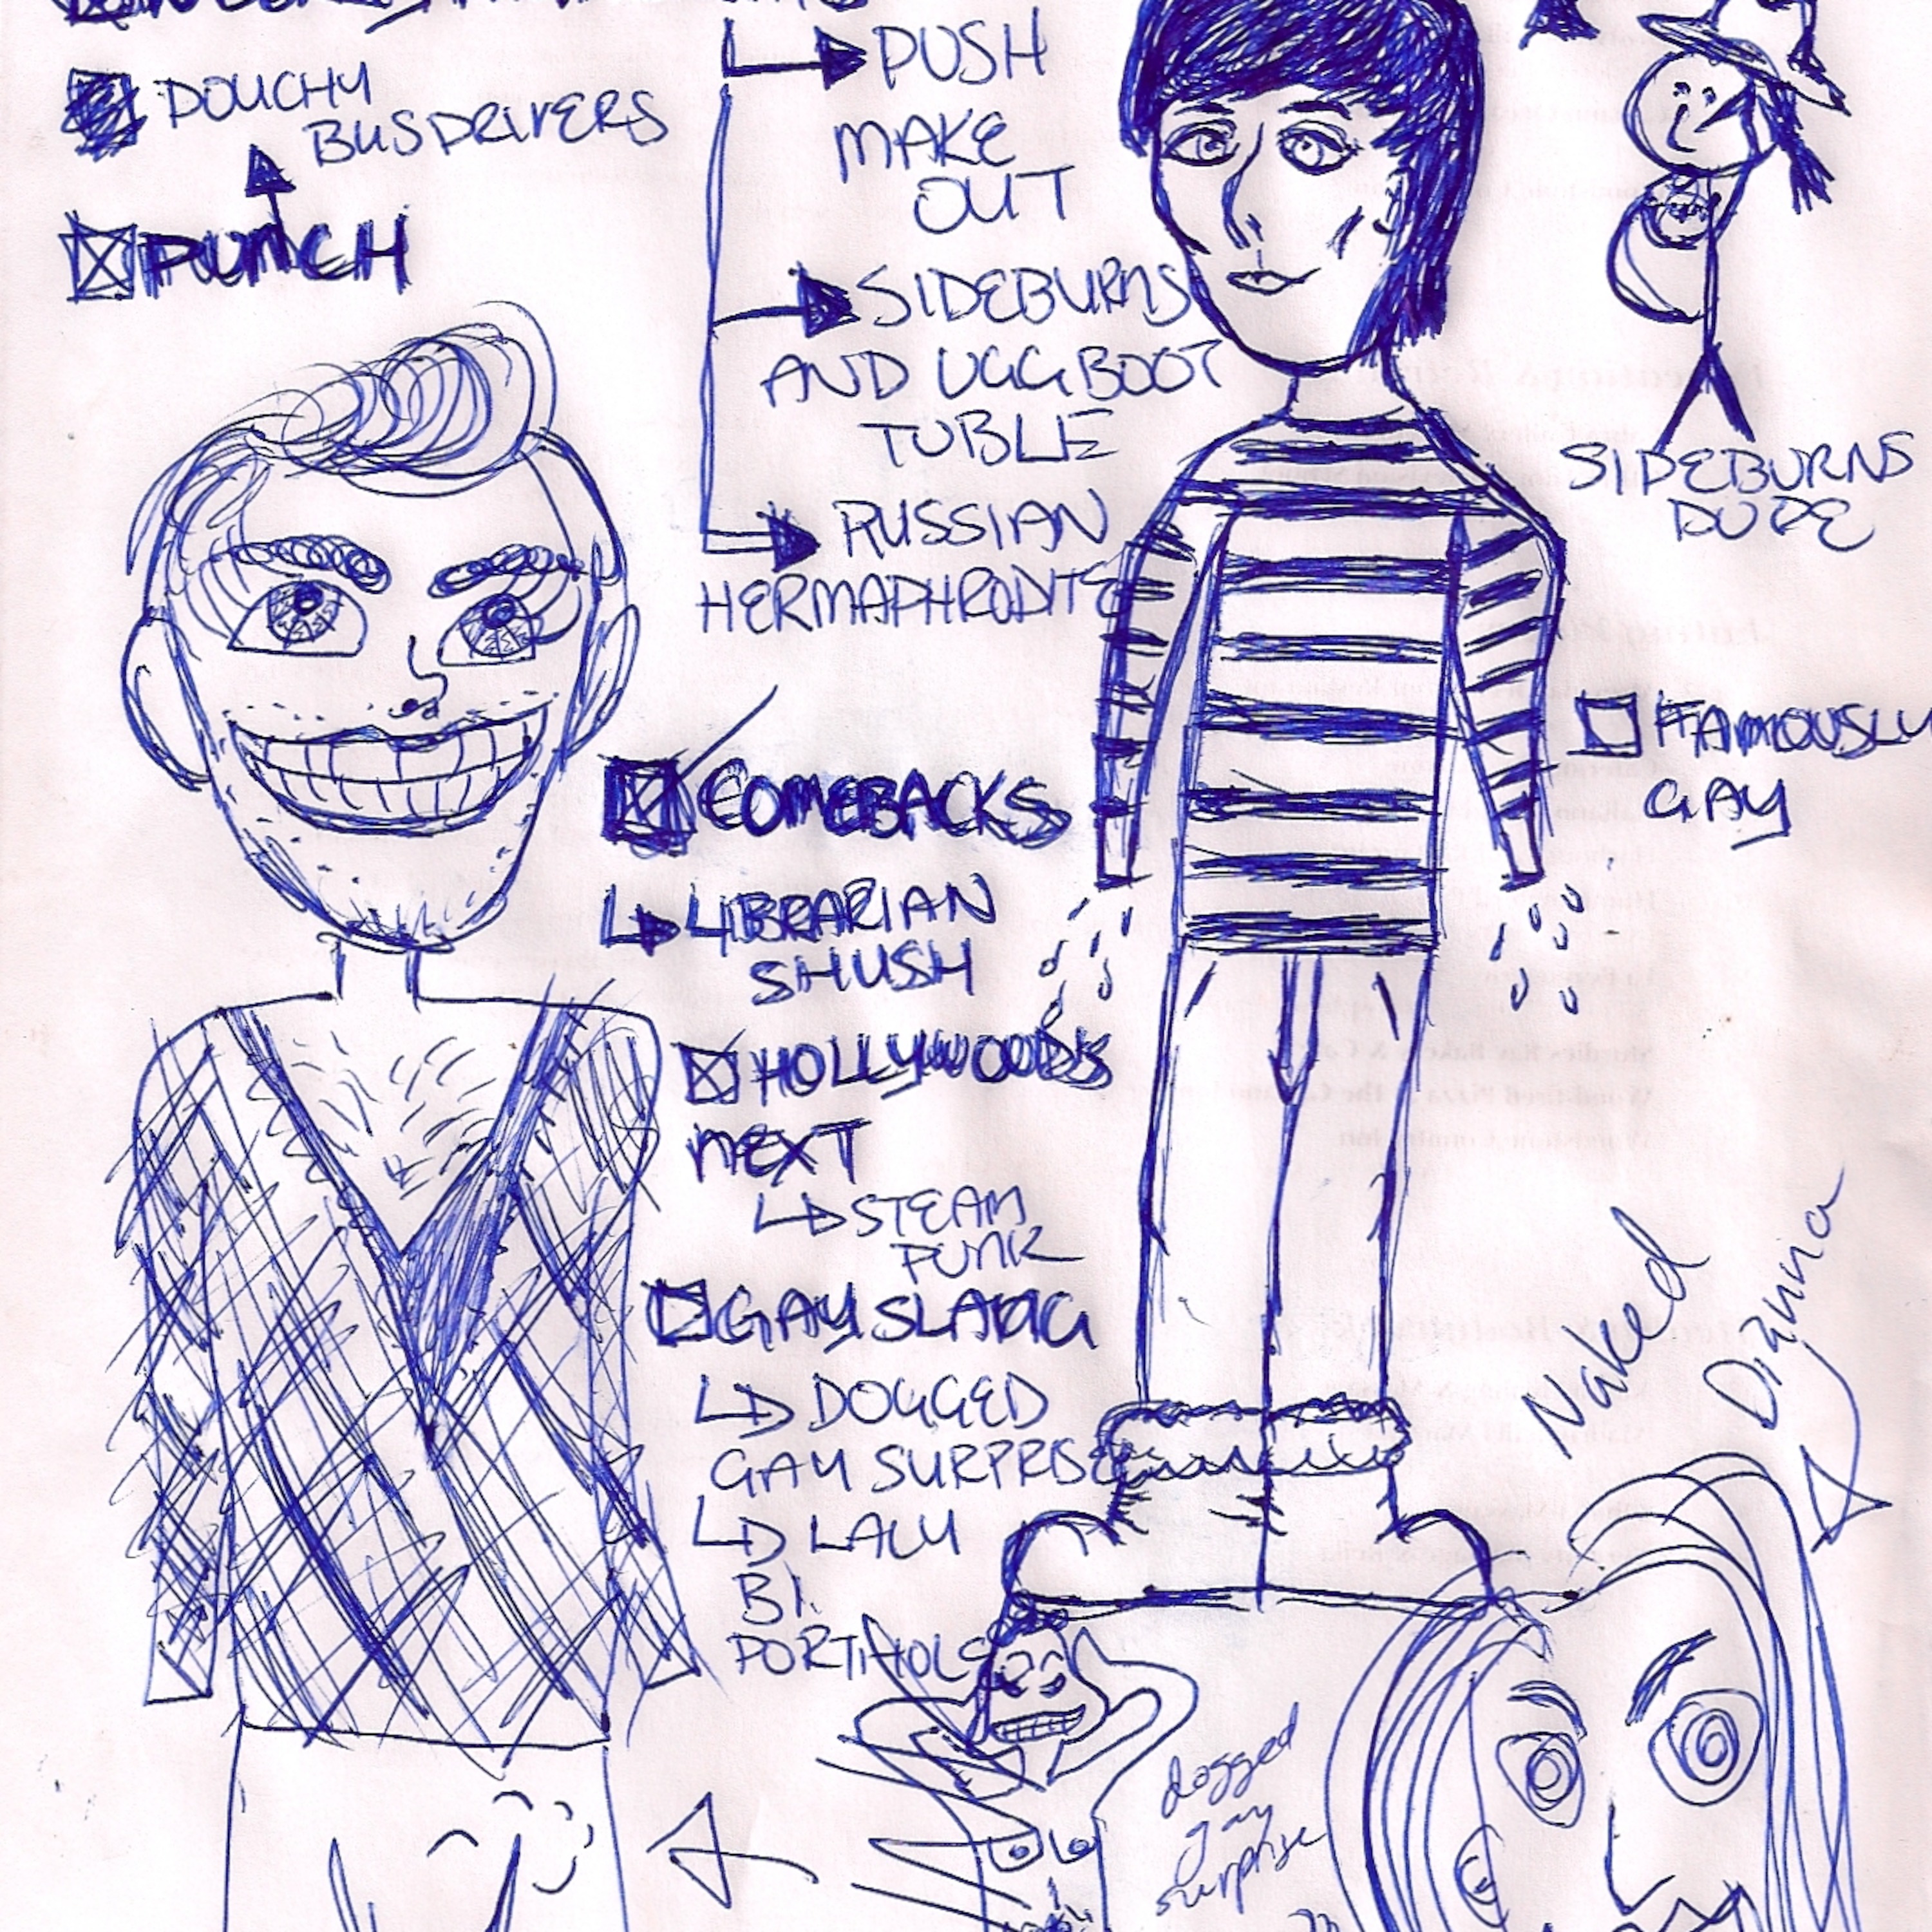 DOUCHY
BUSDRIVERS
PUNCH
PUSH
MAKE
OUT
SIDEBURNS
AND UGG BOOT
TUBLE
RUSSIAN
HERMAPHRODITE
SIDEBURNS
DUDE
FAMOUSLY
GAY
COMEBACKS
LIBRARIAN
SHUSH
HOLLYWOODS
NEXT
STEAM
PUNK
GAY SLANG
DOGGED
GAY SURPRISE
LALU
BI.
Naked
Dianna
dogged
gay
surprise